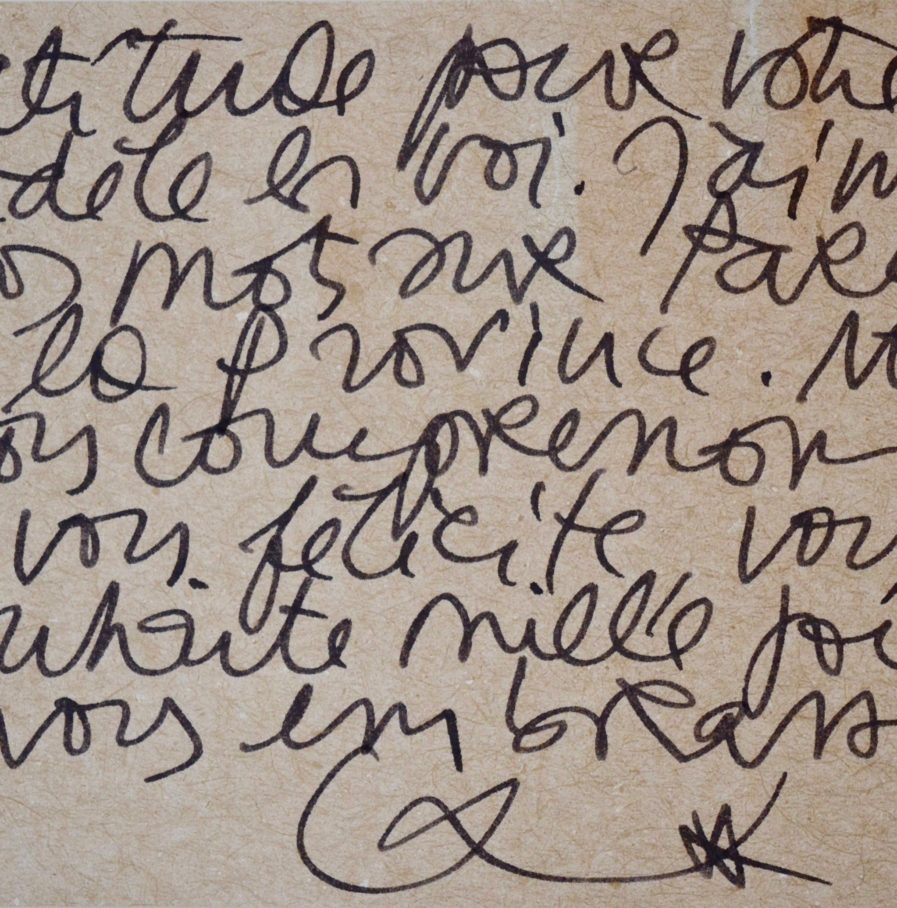 titude pour votre
dèle en voi. J'aim
os mots sur Pare
la Province. N
ous comprenon
vous félicite vou
uhaite mille joi
vous embrass